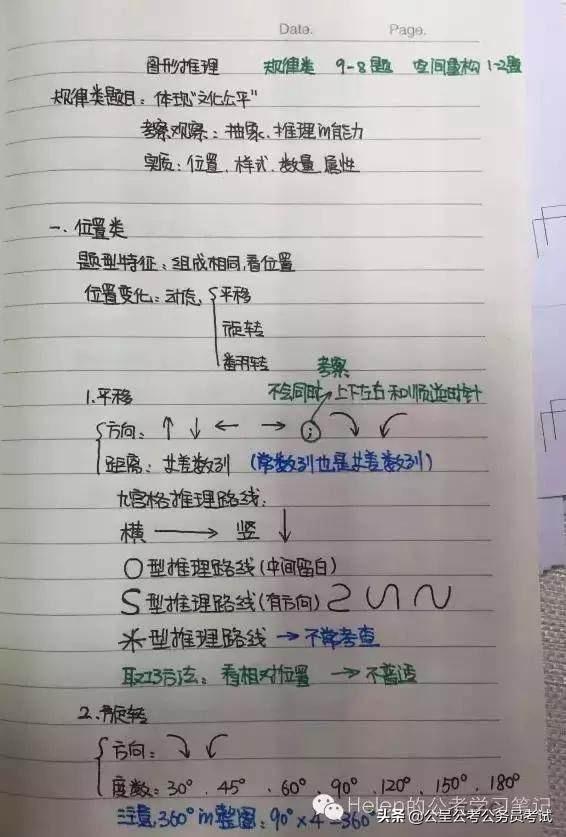 Date. Page.
图形推理 规律类 9-8题 空间重构1-2题
规律类题目：体现“文化公平”
考察观察、抽象、推理的能力
实质：位置、样式、数量、属性
一、位置类
题型特征：组成相同,看位置
位置变化：动态,{平移
旋转
翻转
考察
1.平移 不会同时 上下左右和顺逆时针
方向：↑ ↓ ← → ;
距离：等差数列（常数列也是等差数列）
九宫格推理路线：
横 → 竖 ↓
O型推理路线(中间留白)
S型推理路线(有方向)
米型推理路线 → 不常考查
取巧方法：看相对位置 → 不普适
2.旋转
方向：
度数：30°、45°、60°、90°、120°、150°、180°
注意,360°的整图：90°×4=360°
Helen的公考学习笔记
头条 @公皇公考公务员考试